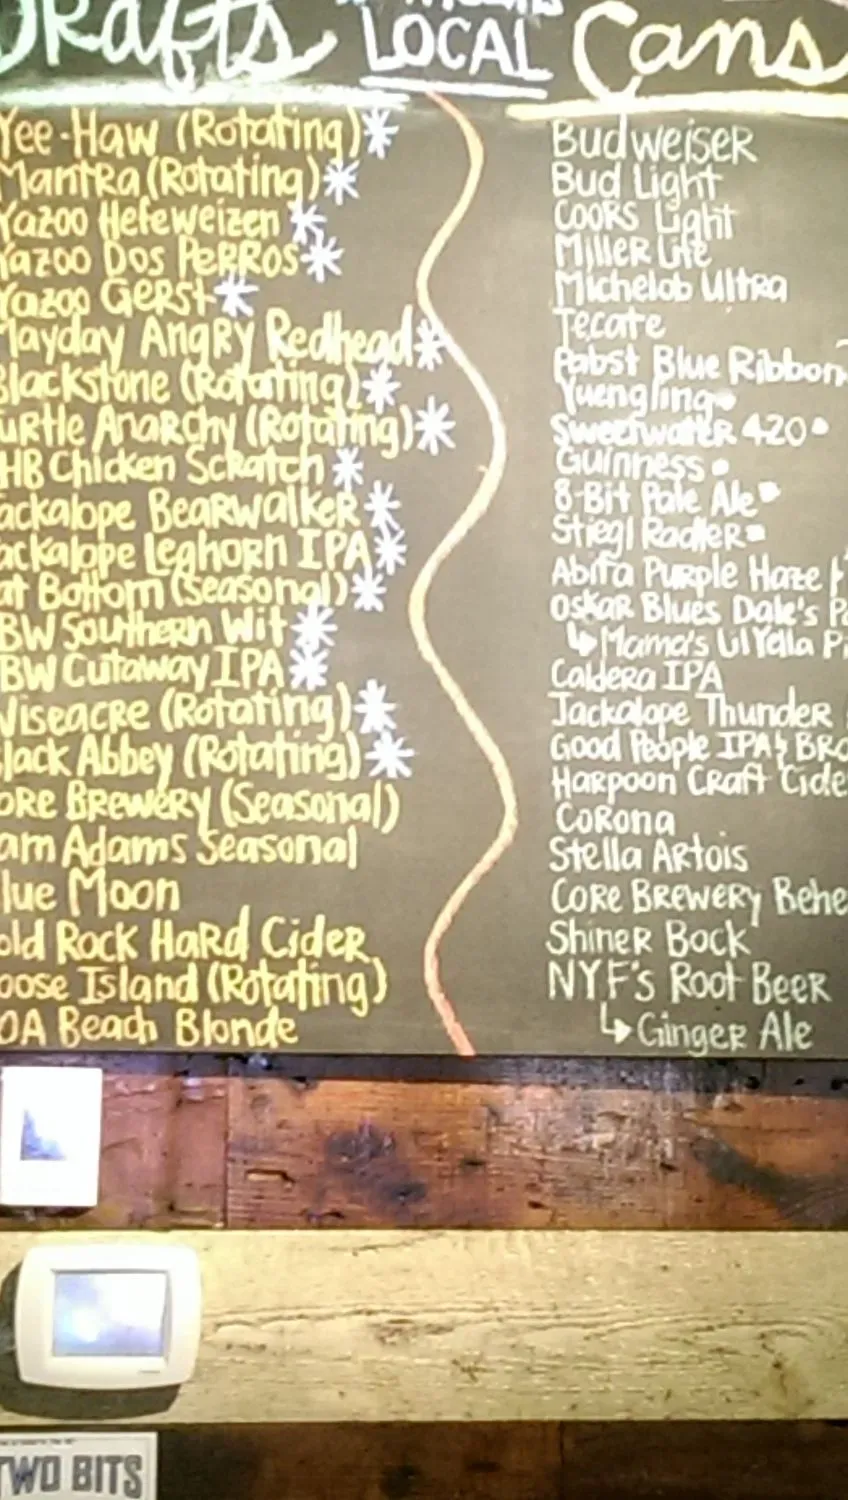 Drafts
LOCAL
Yee-Haw (Rotating)*
Mantra (Rotating)*
Yazoo Hefeweizen*
Yazoo Dos Perros*
Yazoo Gerst*
Mayday Angry Redhead*
lackstone (Rotating)*
urtle Anarchy (Rotating)*
HB Chicken Scratch*
ackalope Bearwalker*
ackalope Leghorn IPA*
at Bottom (Seasonal)*
BW Southern Wit*
BW Cutaway IPA*
Wiseacre (Rotating)*
lack Abbey (Rotating)*
ore Brewery (Seasonal)
am Adams Seasonal
lue Moon
old Rock Hard Cider
oose Island (Rotating)
OA Beach Blonde
Cans
Budweiser
Bud Light
Coors Light
Miller Lite
Michelob Ultra
Tecate
Pabst Blue Ribbon
Yuengling
Sweetwater 420
Guinness
8-Bit Pale Ale
Stiegl Radler
Abita Purple Haze
Oskar Blues Dale's Pa
↳Mama's Lil Yella Pi
Caldera IPA
Jackalope Thunder
Good People IPA & Bro
Harpoon Craft Cide
Corona
Stella Artois
Core Brewery Behe
Shiner Bock
NYF's Root Beer
↳Ginger Ale
TWO BITS